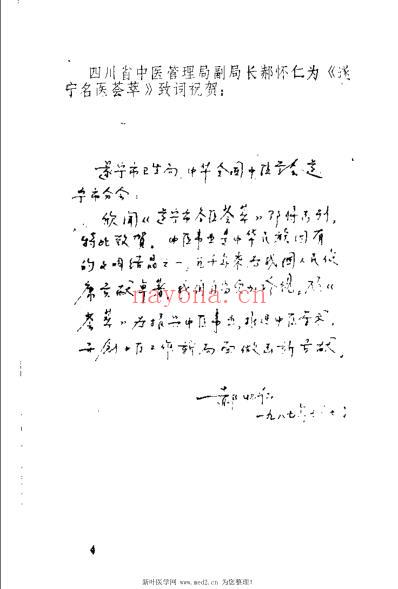 四川省中医管理局副局长郝怀仁为《遂
宁名医荟萃》致词祝贺：
遂宁市卫生局、中华全国中医学会遂
宁市分会：
欣闻《遂宁市名医荟萃》即将出刊，
特此致贺。中医事业是中华民族固有
的文明结晶之一，几千年来为我国人民健
康贡献卓著，我们应当
荟萃》为振兴中医事业，推进中医学术，
开创中医工作新局面做出新贡献。
郝怀仁
一九八七年
nayona.cn
4
新叶医学网 www.med2.cn 为您整理！